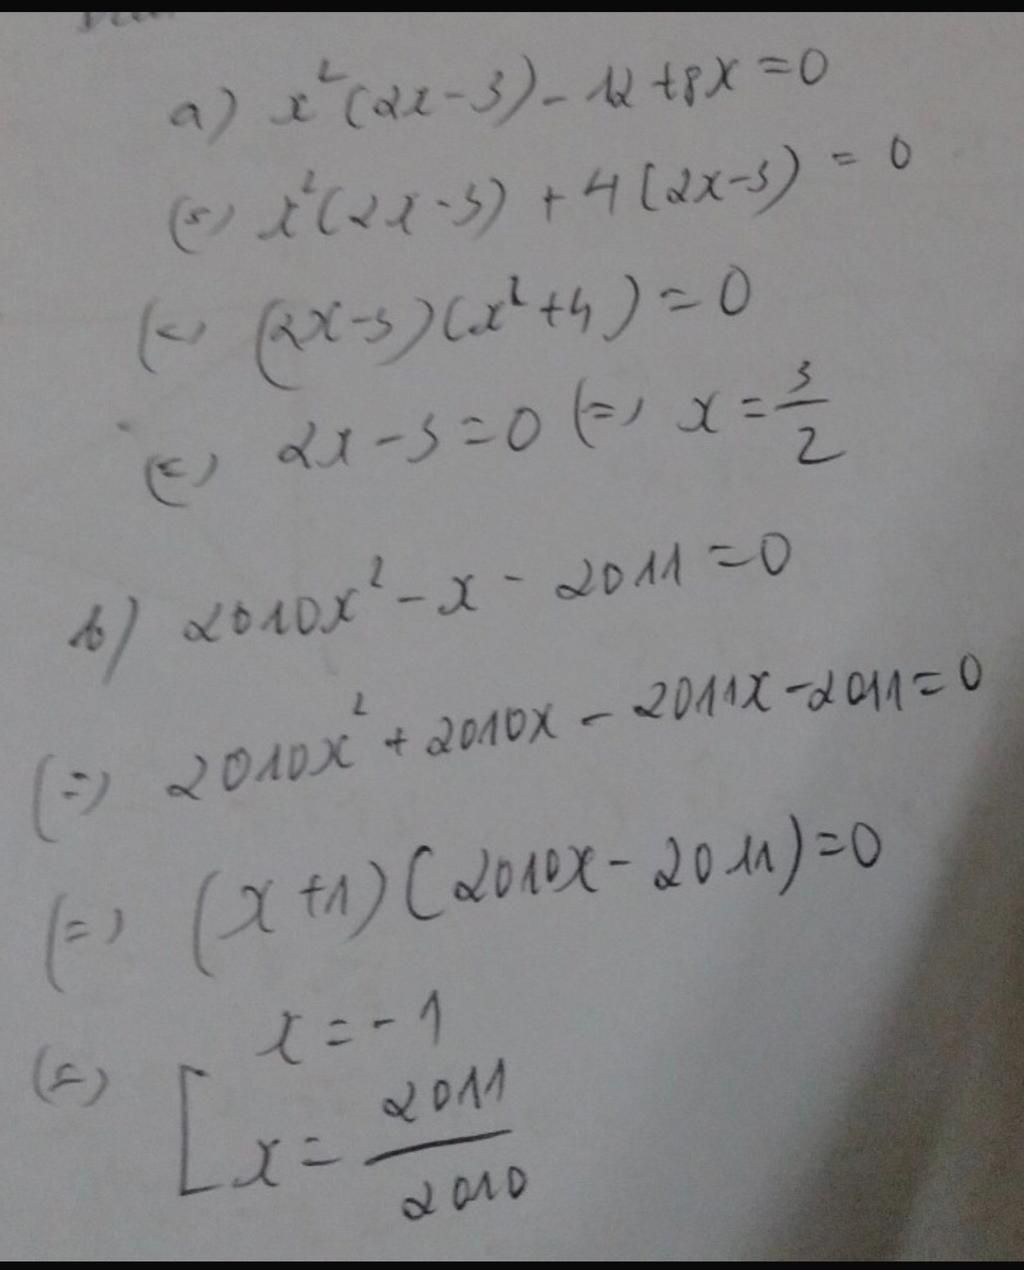 a) x²(2x-3)-12+8x=0
(=) x²(2x-3)+4(2x-3)=0
(=) (2x-3)(x²+4)=0
(=) 2x-3=0 (=) x=3/2
b) 2010x²-x-2011=0
(=) 2010x²+2010x-2011x-2011=0
(=) (x+1)(2010x-2011)=0
(=) [ x=-1
x=2011/2010